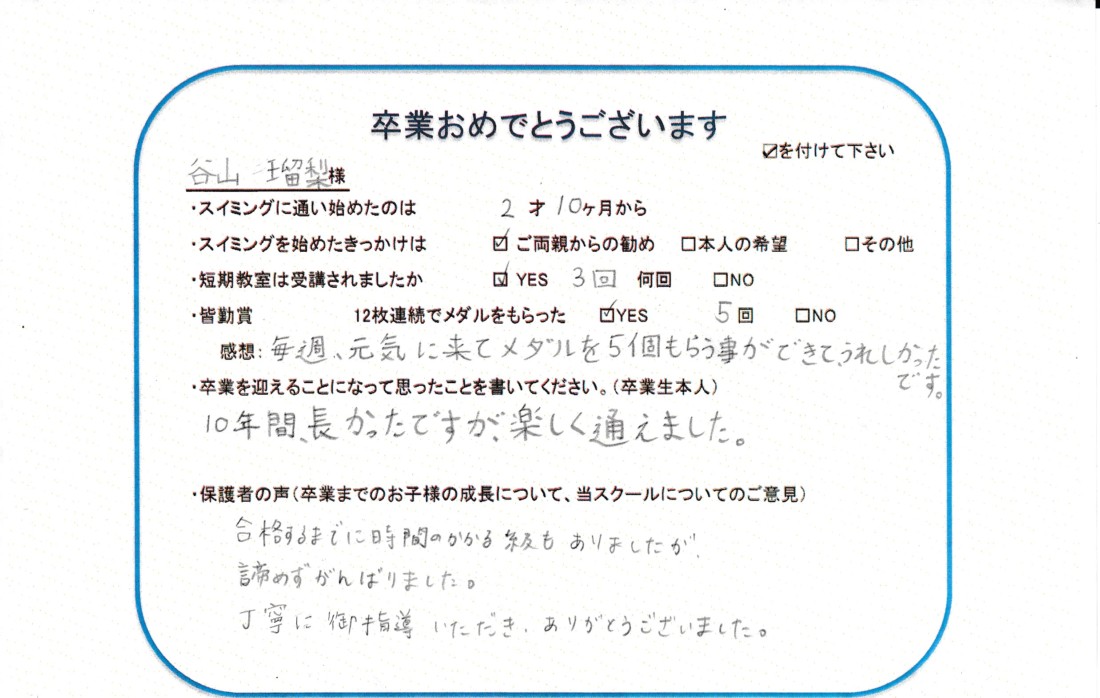 卒業おめでとうございます
☑を付けて下さい
谷山 瑠梨様
・スイミングに通い始めたのは 2 才 10ヶ月から
・スイミングを始めたきっかけは ☑ご両親からの勧め □本人の希望 □その他
・短期教室は受講されましたか ☑YES 3回 何回 □NO
・皆勤賞 12枚連続でメダルをもらった ☑YES 5回 □NO
感想:毎週、元気に来てメダルを5個もらう事ができて、うれしかった
です。
・卒業を迎えることになって思ったことを書いてください。(卒業生本人)
10年間、長かったですが、楽しく通えました。
・保護者の声(卒業までのお子様の成長について、当スクールについてのご意見)
合格するまでに時間のかかる級もありましたが、
諦めずがんばりました。
丁寧に御指導いただき、ありがとうございました。